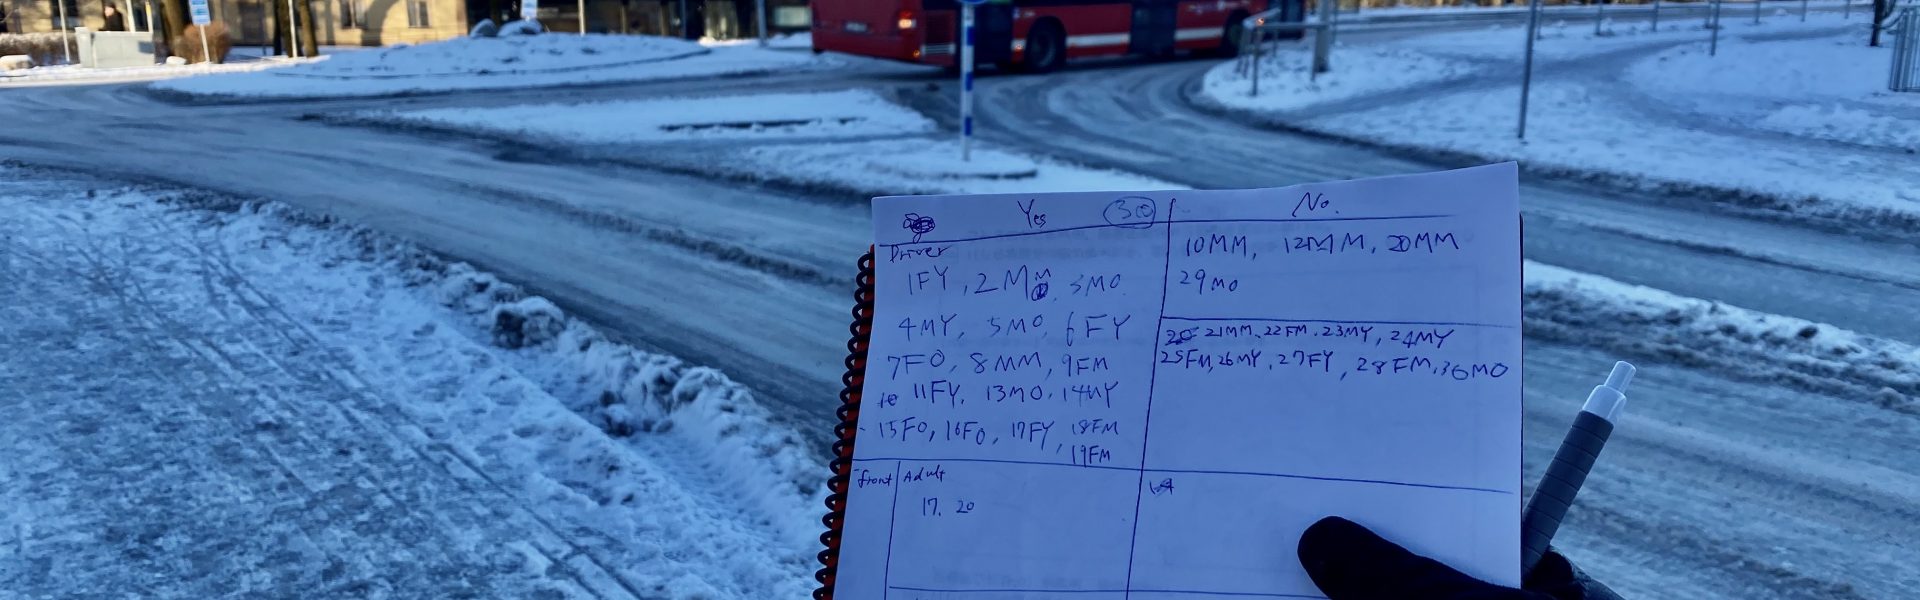 Yes 30 No.
Driver
1FY, 2MM, 3MO.
4MY, 5MO, 6FY
7FO, 8MM, 9FM
10 11FY, 13MO, 14MY
15FO, 16FO, 17FY, 18FM
19FM
10MM, 12MM, 20MM
29MO
20 21MM, 22FM, 23MY, 24MY
25FM, 26MY, 27FY, 28FM, 30MO
front Adult
17. 20